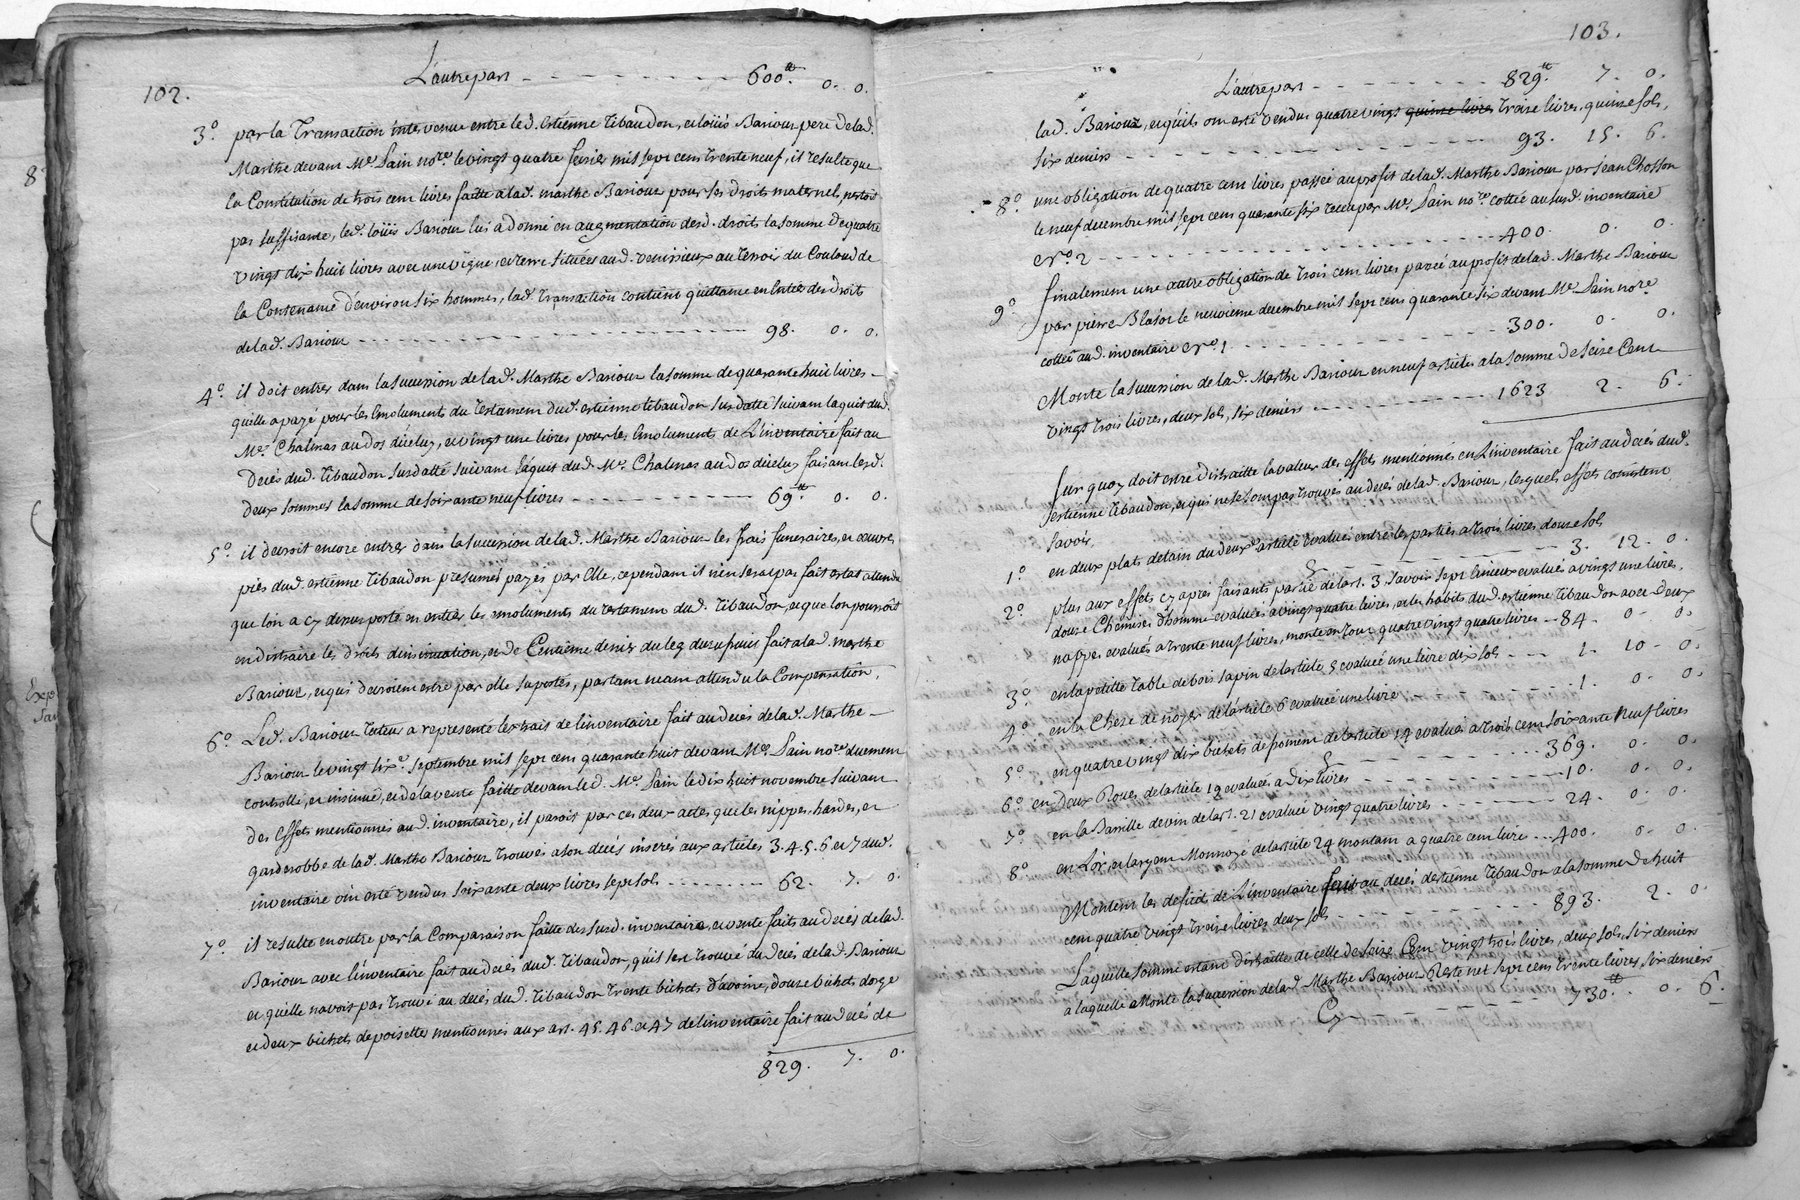 102.
L'autre part - - - - - - - 600.ᵗᵗ 0. 0.
3.º par la Transaction intervenue entre led. Estienne Tibaudon, et Loüis Barioux pere de lad.
Marthe devant Mᵉ. Lain noʳᵉ. le vingt quatre fevrier mil sept cens trente neuf, il resulte que
la Constitution de trois cens livres faitte a lad. marthe Barioux pour ses droits maternel, n'estoit
pas suffisante, led. loüis Barioux lui a donné en augmentation desd. droits la somme de quatre
vingt dix huit livres avec une vigne et terre situées aud. venissieux au terroir du Couloud de
la Contenance d'environ six hommes, lad. transaction contient quittance en entier des droits
de lad. Barioux - - - - - - - - - - 98. 0. 0.
4.º il doit entrer dans la sucession de lad. Marthe Barioux la somme de quarante huit livres
qu'elle a payé pour les Emoluments du testament dud. estienne tibaudon susdatté suivant la quit dud.
Mᵉ. Chalmas au dos d'icelui, et vingt une livres pour les Emoluments de L'inventaire fait au
Decés dud. Tibaudon susdatté suivant l'aquit dud. Mᵉ. Chalmas au dos d'icelui faisant lesd.
deux sommes la somme de soixante neuf livres - - - - - - 69.ᵗᵗ 0. 0.
5.º il devroit encore entrer dans la sucession de lad. Marthe Barioux les frais funeraires, et oeuvres
pies dud. estienne Tibaudon presumés payés par elle, cependant il n'en sera pas fait estat attendu
que l'on a cy dessus porté en entier les emoluments du testament dud. Tibaudon, et que l'on pourroit
en distraire les droits d'insinuation, et de Centième denier du leg d'usufruit fait a lad. marthe
Barioux, et qui devroient estre par elle suportés, partant neant attendu la Compensation.
6.º Led. Barioux tuteur a representé l'extrait de l'inventaire fait au decés de lad. Marthe
Barioux le vingt sixᵉ. septembre mil sept cens quarante huit devant Mᵉ. Lain noʳᵉ duement
controllé, et insinué, et de la vente faitte devant led. Mᵉ. Lain le dix huit novembre suivant
des effets mentionnés aud. inventaire, il paroit par ces deux actes que les nippes, hardes, et
garderobbe de lad. Marthe Barioux trouvés a son decés inserés aux articles 3. 4. 5. 6 et 7 dud.
inventaire ont esté vendus soixante deux livres sept sols - - - - - - 62. 7. 0.
7.º il resulte en outre par la Comparaison faitte des susd. inventaire, et vente faits au decés de lad.
Barioux avec l'inventaire fait au decés dud. Tibaudon, qu'il s'est trouvé au decés de lad. Barioux
et qu'elle n'avoit pas trouvé au decés dud. Tibaudon trente bichets d'avoine, douze bichets d'orge
et deux bichets de poisettes mentionnés aux art. 45. 46. et 47 de l'inventaire fait au decés de
829. 7. 0.
103.
L'autre part - - - - - - - 829.ᵗᵗ 7. 0.
lad. Barioux, et qu'ils ont esté vendus quatre vingt quinze livres treize livres, quinze sols,
six deniers - - - - - - - - - 93. 15. 6.
8.º une obligation de quatre cens livres passée au profit de lad. Marthe Barioux par Jean Chosson
le neuf decembre mil sept cens quarante six receu par Mᵉ. Lain noʳᵉ cottée au susd. inventaire
Nº. 2 - - - - - - - - - 400. 0. 0.
9.º finalement une autre obligation de trois cens livres passée au profit de lad. Marthe Barioux
par pierre Blasor le neuvieme decembre mil sept cens quarante six devant Mᵉ. Lain noʳᵉ
cottée aud. inventaire Nº. 1 - - - - - - - 300. 0. 0.
Monte la sucession de lad. Marthe Barioux en neuf articles a la somme de Seize Cent
vingt trois livres, deux sols, six deniers - - - - - 1623 2. 6.
Sur quoy doit estre distraitte la valeur des effets mentionnés en L'inventaire fait au decés dud.
estienne Tibaudon, et qui ne se sont pas trouvés au decés de lad. Barioux, lesquels effets consistent
Savoir.
1.º en deux plats d'etain du deuxᵉ article evalués entre les parties a trois livres douze sols
- - - - - 3. 12. 0.
2.º plus aux effets cy apres faisants partie de l'art. 3 savoir sept linceux evalués a vingt une livres,
douze Chemises d'homme evaluées a vingt quatre livres, et les habits dud. estienne Tibaudon avec deux
nappes evalués a trente neuf livres, monte en tout quatre vingt quatre livres - - 84. 0. 0.
3.º en la petitte table de bois sapin de l'article 5 evaluée une livre dix sols - - - 1. 10. 0.
4.º en la Cheze de noyer de l'article 6 evaluée une livre - - - 1. 0. 0.
5.º en quatre vingt dix bichets de froment de l'article 14 evalués a trois cens soixante Neuf livres
- - - - - 369. 0. 0.
6.º en Deux Roues de l'article 19 evaluées a Dix livres - - - - - 10. 0. 0.
7.º en la Barrille de vin de l'art. 21 evaluée vingt quatre livres - - - - 24. 0. 0.
8.º en L'or, et largent Monnoyé de l'article 24 montant a quatre cens livres - - - 400. 0. 0.
Montent les deficits de L'inventaire fait au decés d'estienne Tibaudon a la somme de huit
cent quatre vingt treize livres deux sols - - - - - - 893. 2. 0.
Laquelle somme estant distraitte de celle de seize Cent vingt trois livres, deux sols, six deniers
a laquelle monte la sucession de lad. Marthe Barioux Reste net sept cens trente livres six deniers
Cy - - - - 730.ᵗᵗ 0. 6.